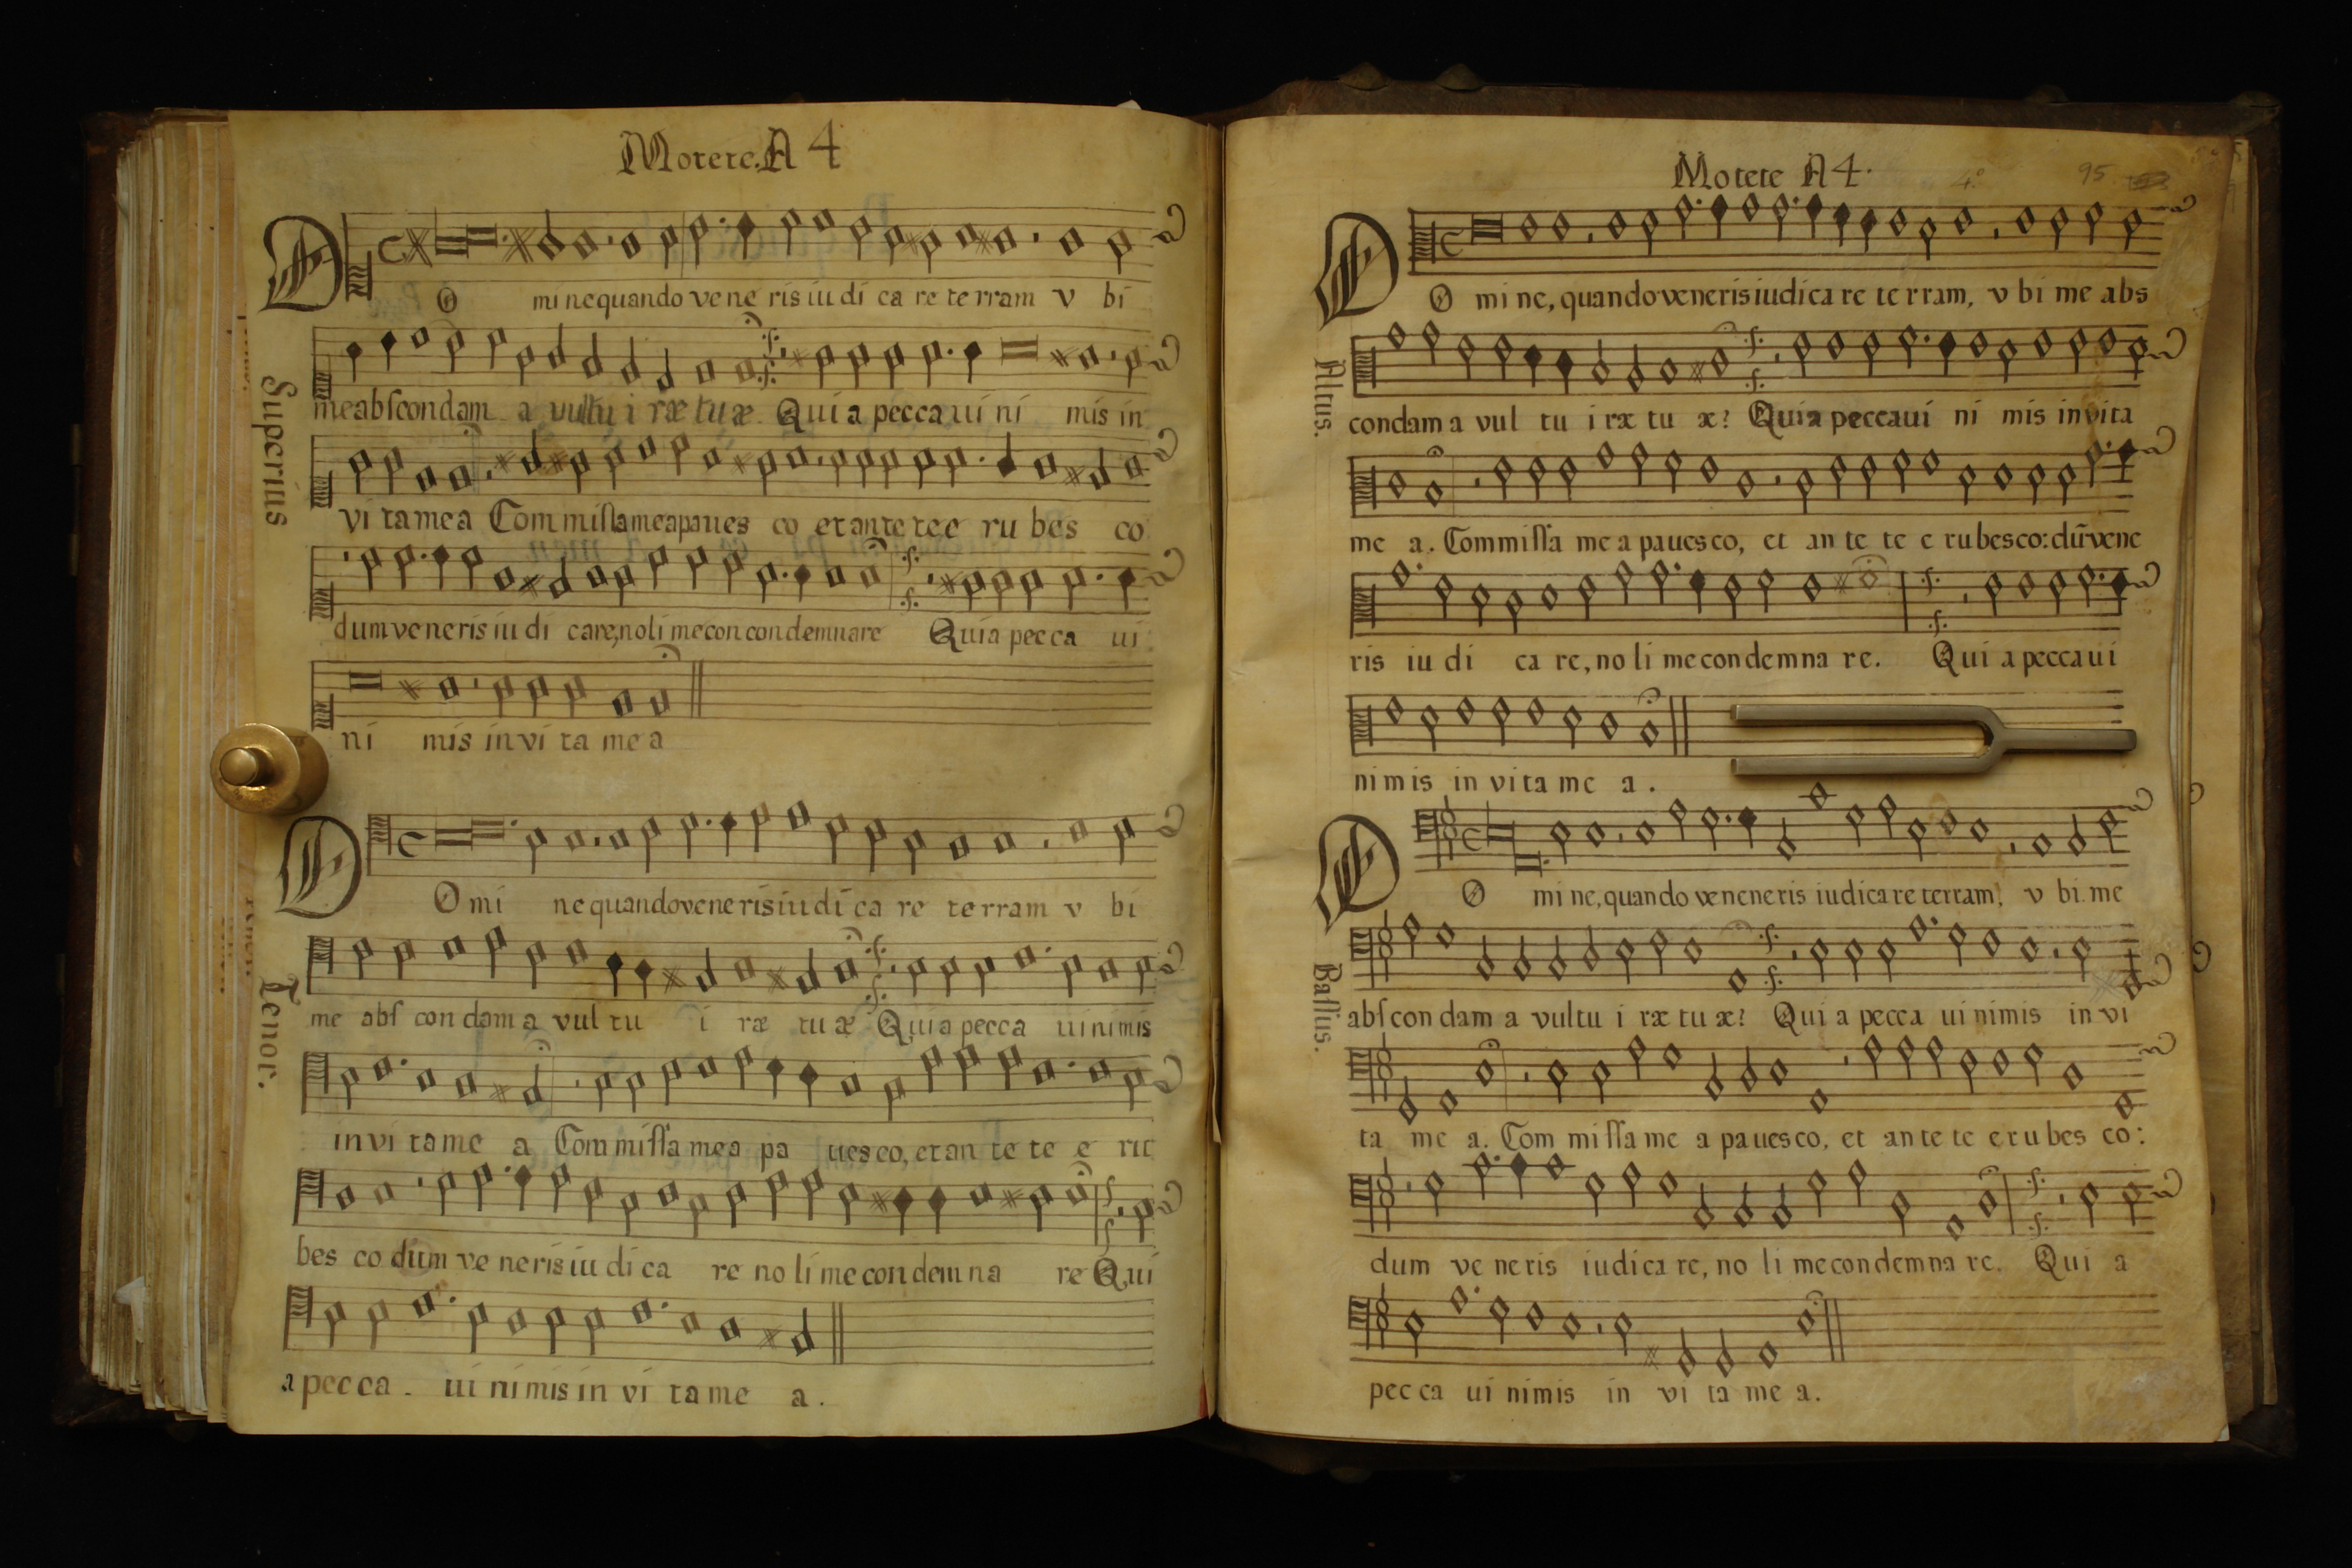 Motete. A 4
DO minequando vene ris iu di ca re te rram v bi
Superius
me abscondam a vultu i ræ tuæ Quia pecca ui ni mis in
vi ta mea Commissa mea paues co et ante te e ru bes co
dum veneris iu di care, noli me con condemnare Quia pecca ui
ni mis in vi ta me a
DOmi ne quando veneris iu di ca re te rram v bi
Tenor.
me abs con dam a vul tu i ræ tu æ Quia pecca ui nimis
in vi ta me a Commissa mea pa ues co, et an te te e ru
bes co dum ve neris iu di ca re no li me con dem na re Qui
a pec ca . ui ni mis in vi ta me a.
Motete A 4.
4º 95
DO mi ne, quando veneris iudica re te rram, v bi me abs
Altus.
condam a vul tu i ræ tu æ? Quia peccaui ni mis in vita
me a. Commissa me a paues co, et an te te e rubesco: dũ vene
ris iu di ca re, no li me condemna re. Qui a pecca ui
nimis in vita me a.
DO mi ne, quando veneneris iudica re terram, v bi. me
Bassus.
abscon dam a vultu i ræ tu æ? Qui a pecca ui nimis in vi
ta me a. Com missa me a paues co, et an te te e ru bes co:
dum ve ne ris iudica re, no li me condemna re. Qui a
pec ca ui nimis in vi ta me a.